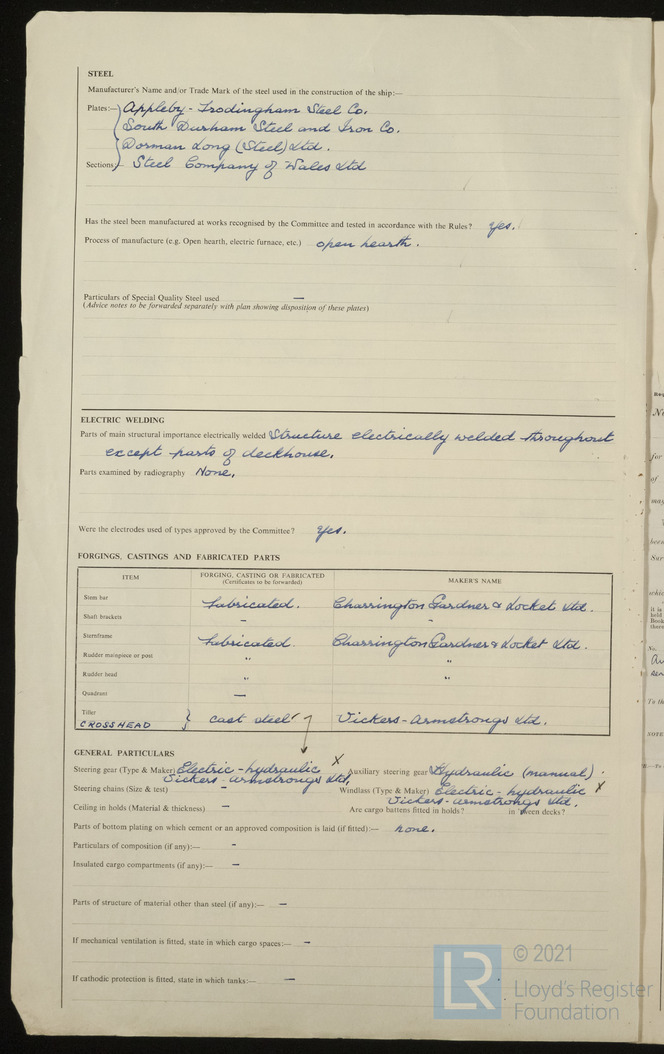 STEEL
Manufacturer's Name and/or Trade Mark of the steel used in the construction of the ship:—
Plates:— Appleby-Frodingham Steel Co.
South Durham Steel and Iron Co.
Dorman Long (Steel) Ltd.
Sections:— Steel Company of Wales Ltd
Has the steel been manufactured at works recognised by the Committee and tested in accordance with the Rules? yes.
Process of manufacture (e.g. Open hearth, electric furnace, etc.) open hearth.
Particulars of Special Quality Steel used —
(Advice notes to be forwarded separately with plan showing disposition of these plates)
ELECTRIC WELDING
Parts of main structural importance electrically welded Structure electrically welded throughout
except parts of deckhouse.
Parts examined by radiography None.
Were the electrodes used of types approved by the Committee? Yes.
FORGINGS, CASTINGS AND FABRICATED PARTS
ITEM FORGING, CASTING OR FABRICATED MAKER'S NAME
(Certificates to be forwarded)
Stem bar Fabricated. Charrington Gardner & Locket Ltd.
Shaft brackets - -
Sternframe Fabricated. Charrington Gardner & Locket Ltd.
Rudder mainpiece or post " "
Rudder head " "
Quadrant —
Tiller
CROSSHEAD } cast steel Vickers-Armstrongs Ltd.
GENERAL PARTICULARS
Steering gear (Type & Maker) Electric-hydraulic X Auxiliary steering gear Hydraulic (manual).
Vickers-Armstrongs Ltd.
Steering chains (Size & test) - Windlass (Type & Maker) Electric-hydraulic X
Vickers-Armstrongs Ltd.
Ceiling in holds (Material & thickness) — Are cargo battens fitted in holds? in 'tween decks?
Parts of bottom plating on which cement or an approved composition is laid (if fitted):— none.
Particulars of composition (if any):— -
Insulated cargo compartments (if any):— -
Parts of structure of material other than steel (if any):— —
If mechanical ventilation is fitted, state in which cargo spaces:— -
If cathodic protection is fitted, state in which tanks:— —
LR
© 2021
Lloyd's Register
Foundation